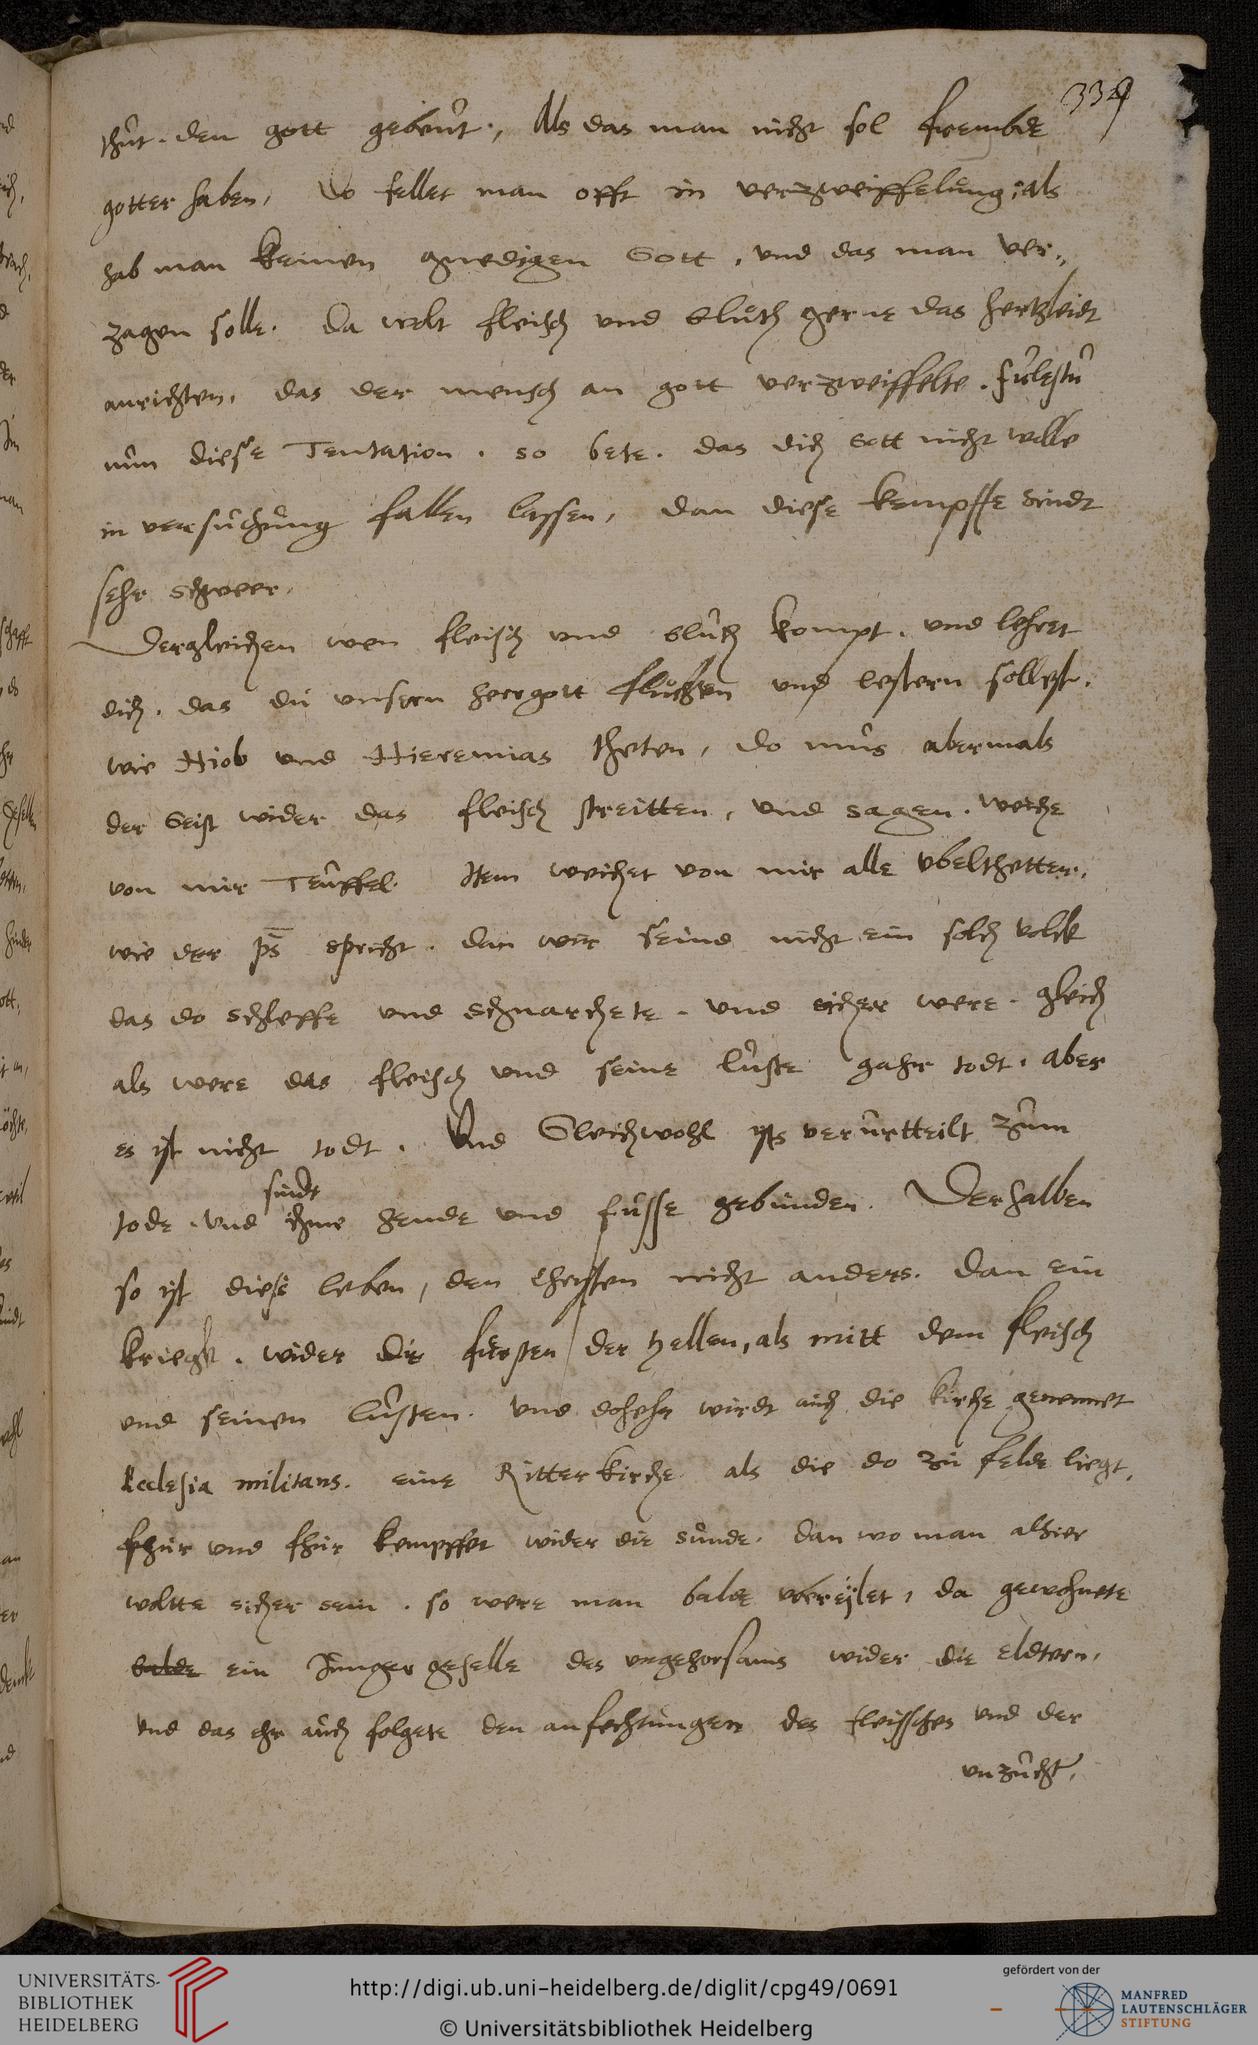 339
thut. den gott gebeut, Als das man nicht sol frembde
gotter haben, Do fellet man offt in verzweiffelung, als
hab man keinen gnedigen Gott, und das man ver„
zagen solle. Da wolt fleisch und bluth gerne das hertzleidt
anrichten, das der mensch an gott verzweiffelte. fulestu
nun diese Tentation. so bete. das dich Gott nicht wolle
in versuchung fallen lassen, dan diese kempffe sindt
sehr schweer.
Dergleichen wen fleisch und bluth kompt. und lehret
dich. das du unsern herrgott fluchen und lestern sollest.
wie Hiob und Hieremias theten, do mus abermals
der Geist wider das fleisch streitten, und sagen. weiche
von mir Teuffel. Item weichet von mir alle vbelthetter,
wie der ps spricht. dan wir seind nicht ein solch volck
das do schleffe und schnarchete. und sicher were. gleich
als were das fleisch und seine luste gahr todt. aber
es ist nicht todt. Und Gleichwohl ists verurtteilt zum
sindt
tode. und ihme hende und fusse gebunden. Derhalben
so ist diese leben, den Christen nicht anders. dan ein
kriegk. wider die fursten der hellen, als mitt dem fleisch
und seinen lusten. und dohehr wirdt auch die kirche genennet
Ecclesia militans. eine Ritterkirche als die do zu felde liegt,
fhur und fhur kempffet wider die sunde. dan wo man alhier
woltte sicher sein. so were man balde vbereÿlet, da gewohnete
balde ein Junger geselle des ungehorsams wider die eldtern,
und das ehr auch folgete den anfechtungen des fleisches und der
unzucht,
UNIVERSITÄTS-
BIBLIOTHEK
HEIDELBERG
http://digi.ub.uni-heidelberg.de/diglit/cpg49/0691
© Universitätsbibliothek Heidelberg
gefördert von der
MANFRED
LAUTENSCHLÄGER
STIFTUNG